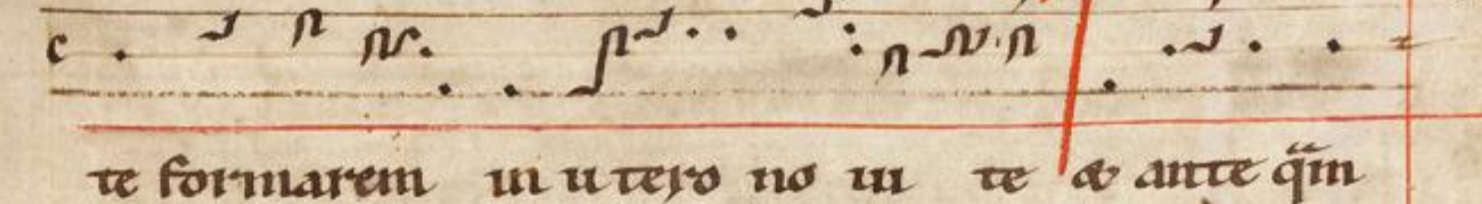 te formarem in utero no ui te & ante q̄m